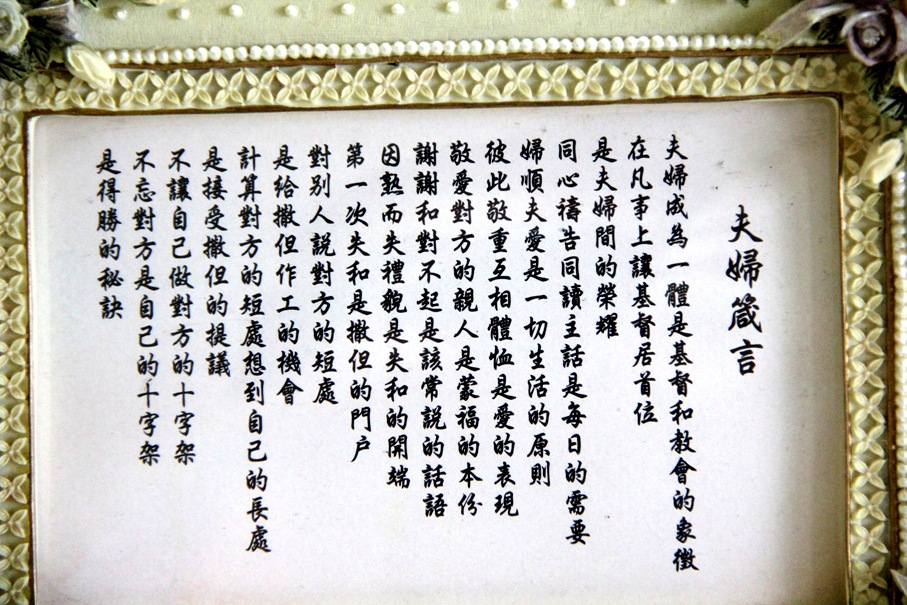 夫婦箴言
夫婦成為一體是基督和教會的象徵
在凡事上讓基督居首位
是夫婦間的榮耀
同心禱告同讀主話是每日的需要
婦順夫愛是一切生活的原則
彼此敬重互相體恤是愛的表現
敬愛對方的親人是蒙福的本份
謝謝和對不起是該常說的話語
因熟而失禮貌是失和的開端
第一次失和是撒但的門戶
對別人說對方的短處
是給撒但作工的機會
計算對方的短處想到自己的長處
是接受撒但的提議
不讓自己做對方的十字架
不忘對方是自己的十字架
是得勝的秘訣